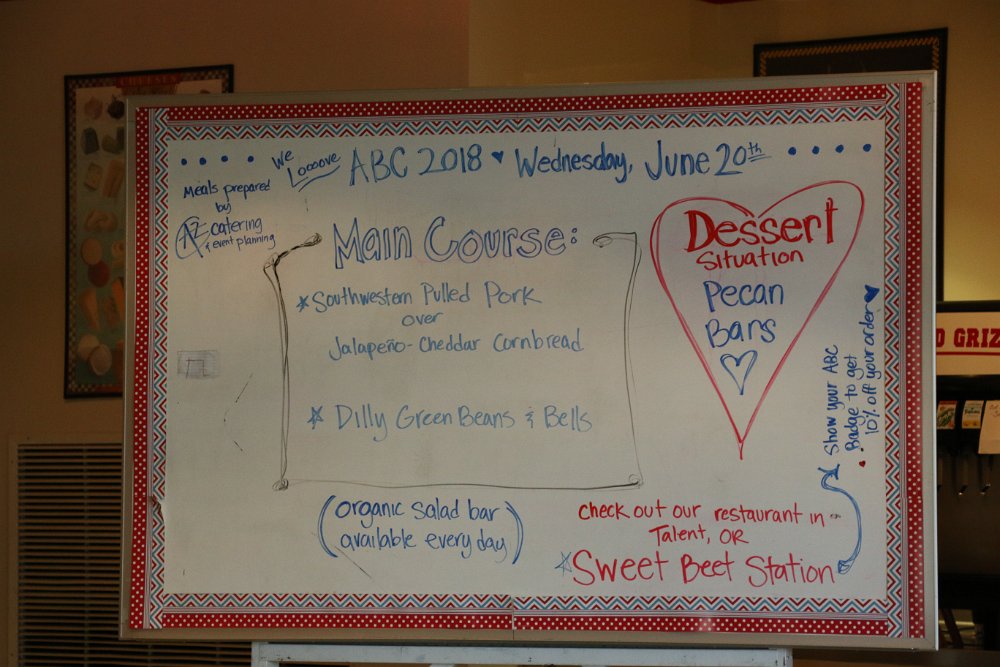 CHEESES
• • • • We Looove ABC 2018 ♥ Wednesday, June 20th • • • •
Meals prepared
by
AZ catering
& event planning
Main Course:
* Southwestern Pulled Pork
over
Jalapeño-Cheddar Cornbread
* Dilly Green Beans & Bells
(organic salad bar
available every day)
Dessert
Situation
Pecan
Bars
Show your ABC
Badge to get
10% off your order ♥
check out our restaurant in
Talent, OR
* Sweet Beet Station
O GRIZ